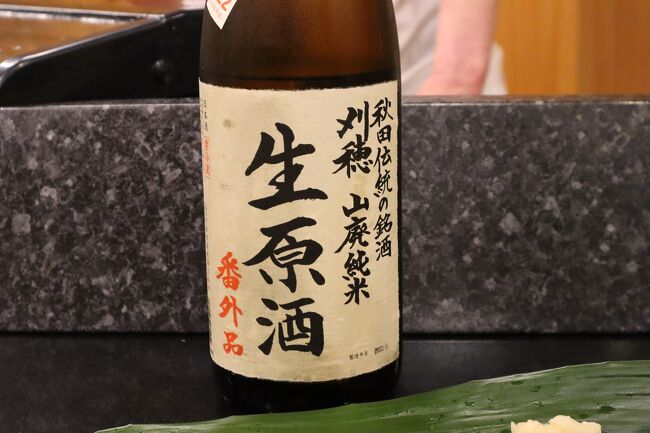 秋田伝統の銘酒
刈穂 山廃純米
生原酒
番外品
製造年月